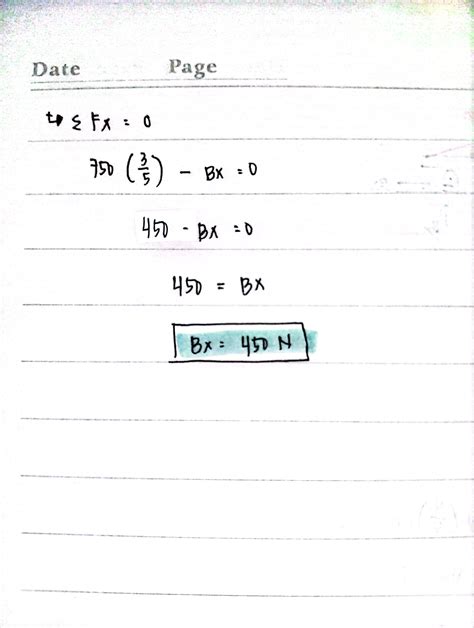 Date Page
→ Σ Fx = 0
750 (3/5) - Bx = 0
450 - Bx = 0
450 = Bx
Bx = 450 N